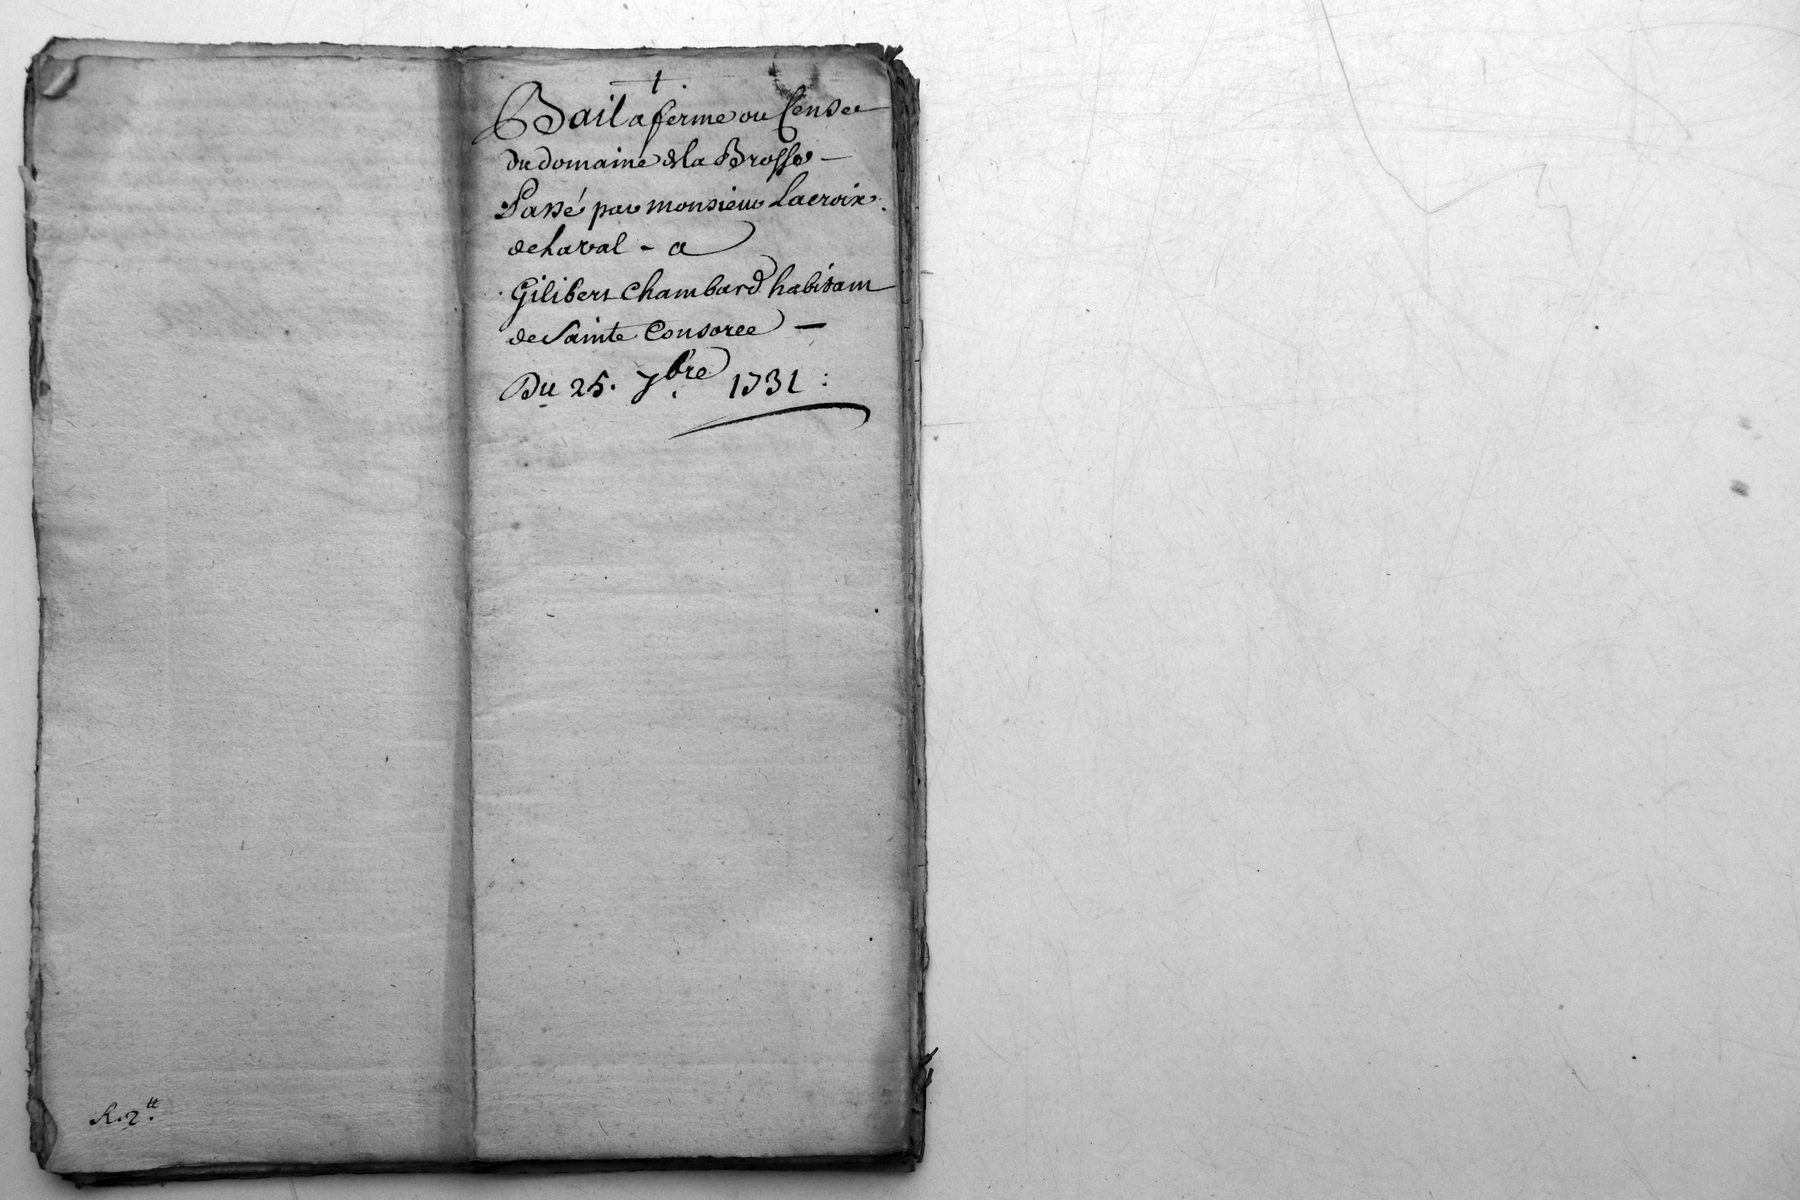 Bail a ferme ou Cense
du domaine de la Brosse
Passé par monsieur Lacroix
de Laval - a
Gilibert Chambard habitant
de Sainte Consorce
Du 25. 7bre 1731
R. 2tt.